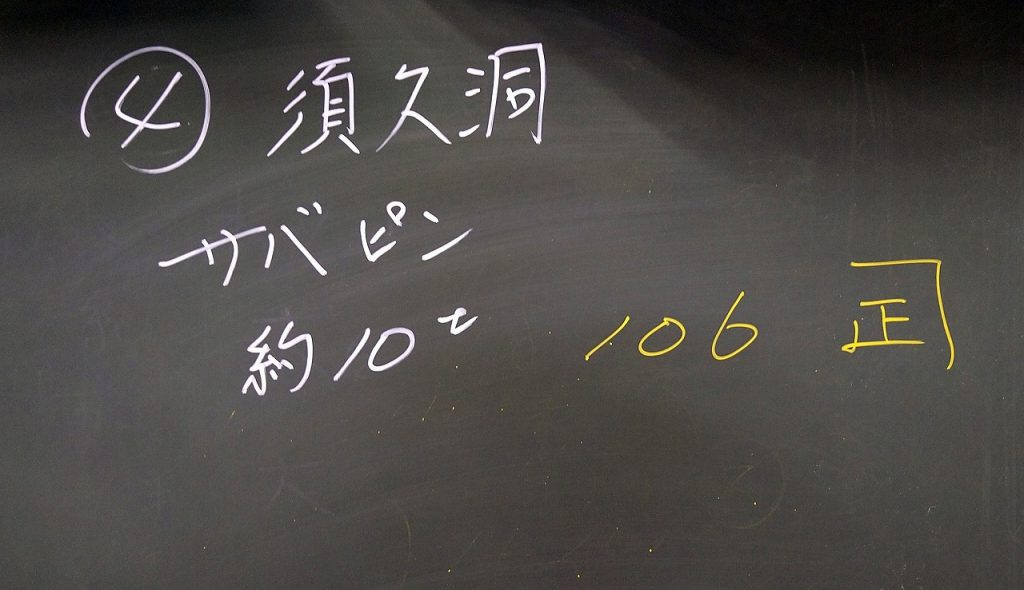 ④ 須久洞
サバピン
約10t 106 正